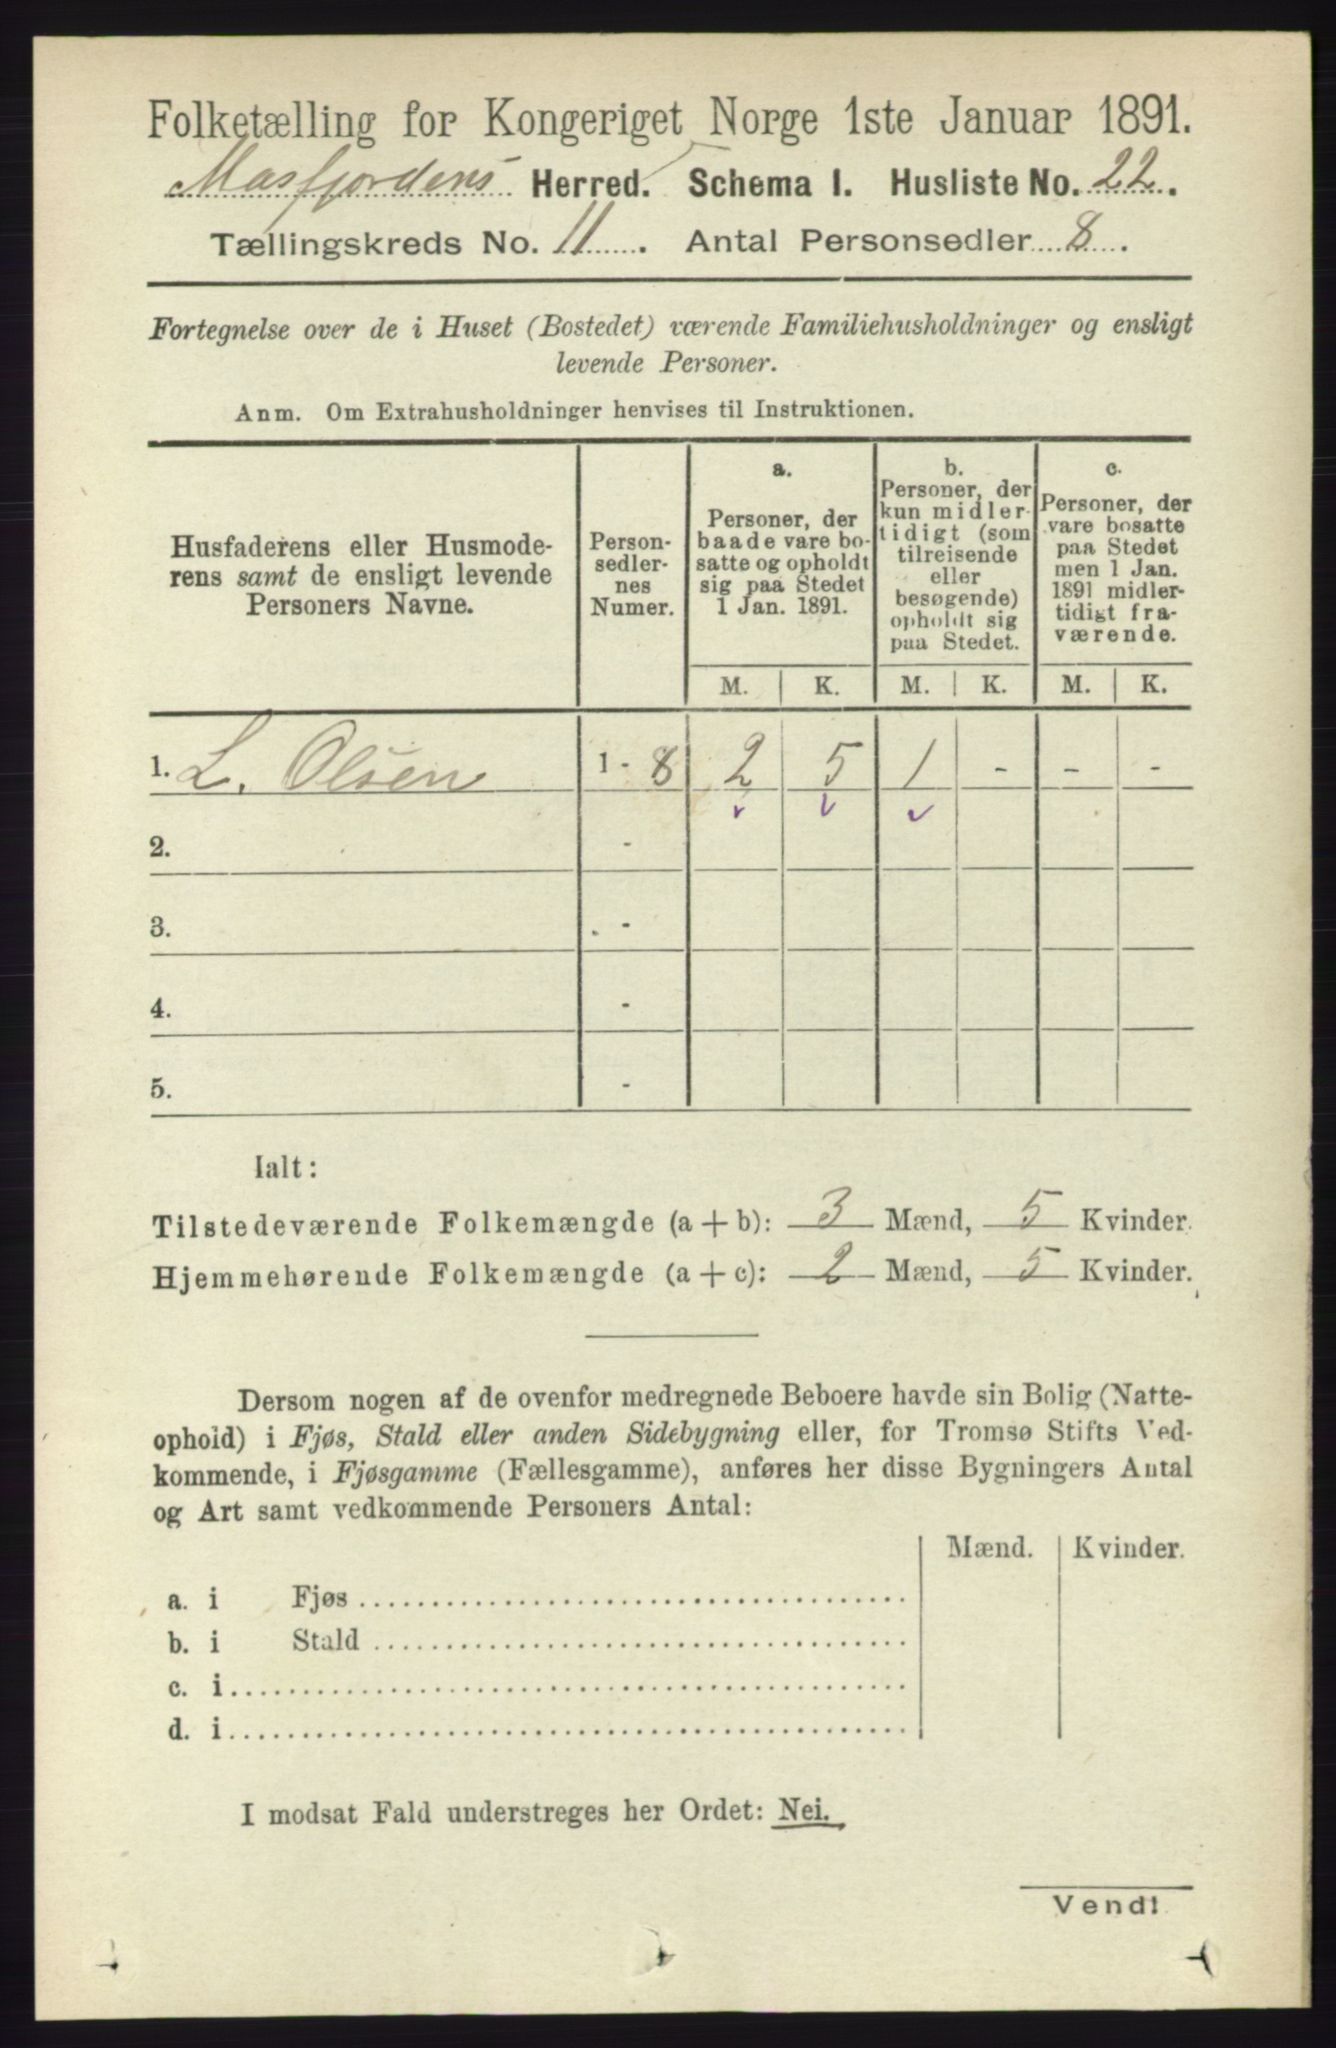 Folketælling for Kongeriget Norge 1ste Januar 1891.
Masfjordens Herred. Schema I. Husliste No. 22.
Tællingskreds No. 11. Antal Personsedler 8.
Fortegnelse over de i Huset (Bostedet) værende Familiehusholdninger og ensligt
levende Personer.
Anm. Om Extrahusholdninger henvises til Instruktionen.
Husfaderens eller Husmode-
rens samt de ensligt levende
Personers Navne.
Person-
sedler-
nes
Numer.
a.
Personer, der
baade vare bo-
satte og opholdt
sig paa Stedet
1 Jan. 1891.
b.
Personer, der
kun midler-
tidigt (som
tilreisende
eller
besøgende)
opholdt sig
paa Stedet.
c.
Personer, der
vare bosatte
paa Stedet
men 1 Jan.
1891 midler-
tidigt fra-
værende.
M. K. M. K. M. K.
1. L. Olsen 1 - 8 2 5 1 - - -
2. -
3. -
4. -
5. -
Ialt:
Tilstedeværende Folkemængde (a + b): 3 Mænd, 5 Kvinder.
Hjemmehørende Folkemængde (a + c): 2 Mænd, 5 Kvinder.
Dersom nogen af de ovenfor medregnede Beboere havde sin Bolig (Natte-
ophold) i Fjøs, Stald eller anden Sidebygning eller, for Tromsø Stifts Ved-
kommende, i Fjøsgamme (Fællesgamme), anføres her disse Bygningers Antal
og Art samt vedkommende Personers Antal:
Mænd. Kvinder.
a. i Fjøs
b. i Stald
c. i
d. i
I modsat Fald understreges her Ordet: Nei.
Vend!